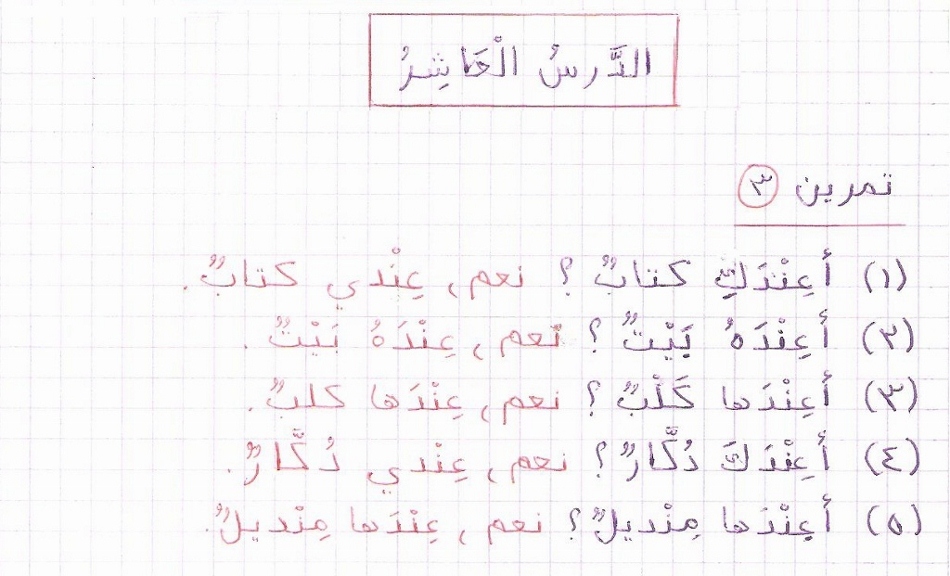 الدَّرسُ الْعَاشِرُ
تمرين ٣
(١) أَعِنْدَكِ كتابٌ؟ نعم، عِنْدي كتابٌ.
(٢) أَعِنْدَهُ بَيْتٌ؟ نعم، عِنْدَهُ بَيْتٌ.
(٣) أَعِنْدَها كَلْبٌ؟ نعم، عِنْدَها كلبٌ.
(٤) أَعِنْدَكَ دُكَّارٌ؟ نعم، عِنْدي دُكَّارٌ.
(٥) أَعِنْدَها مِنْديلٌ؟ نعم، عِنْدَها مِنْديلٌ.